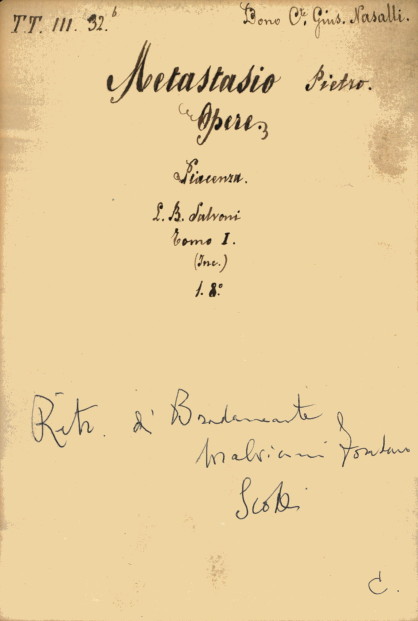 TT. III. 32.b
Dono Cte. Gius. Nasalli.
Metastasio Pietro.
Opere
Piacenza.
L. B. Salvoni
Tomo I.
(Inc.)
1. 8°
Ritr. di Bradamante
Malvicini Fontana
Scotti
C.